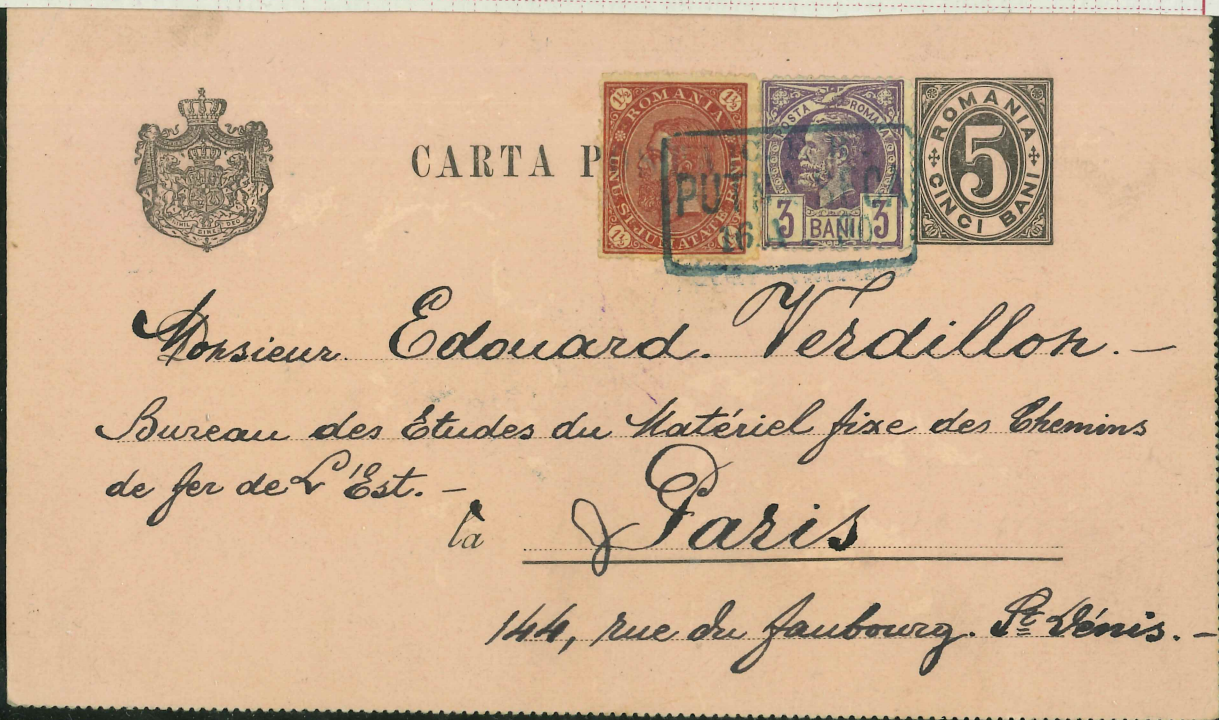 CARTA P
1½ ROMANIA 1½
UNU SI JUMATATE BANI
1½ 1½
POSTA ROMANA
3 BANI 3
ROMANIA
5
CINCI BANI
NIHIL SINE DEO
16
Monsieur Edouard. Verdillon. —
Bureau des Etudes du Matériel fixe des Chemins
de fer de L'Est. —
la Paris
144, rue du faubourg. St Dénis. —